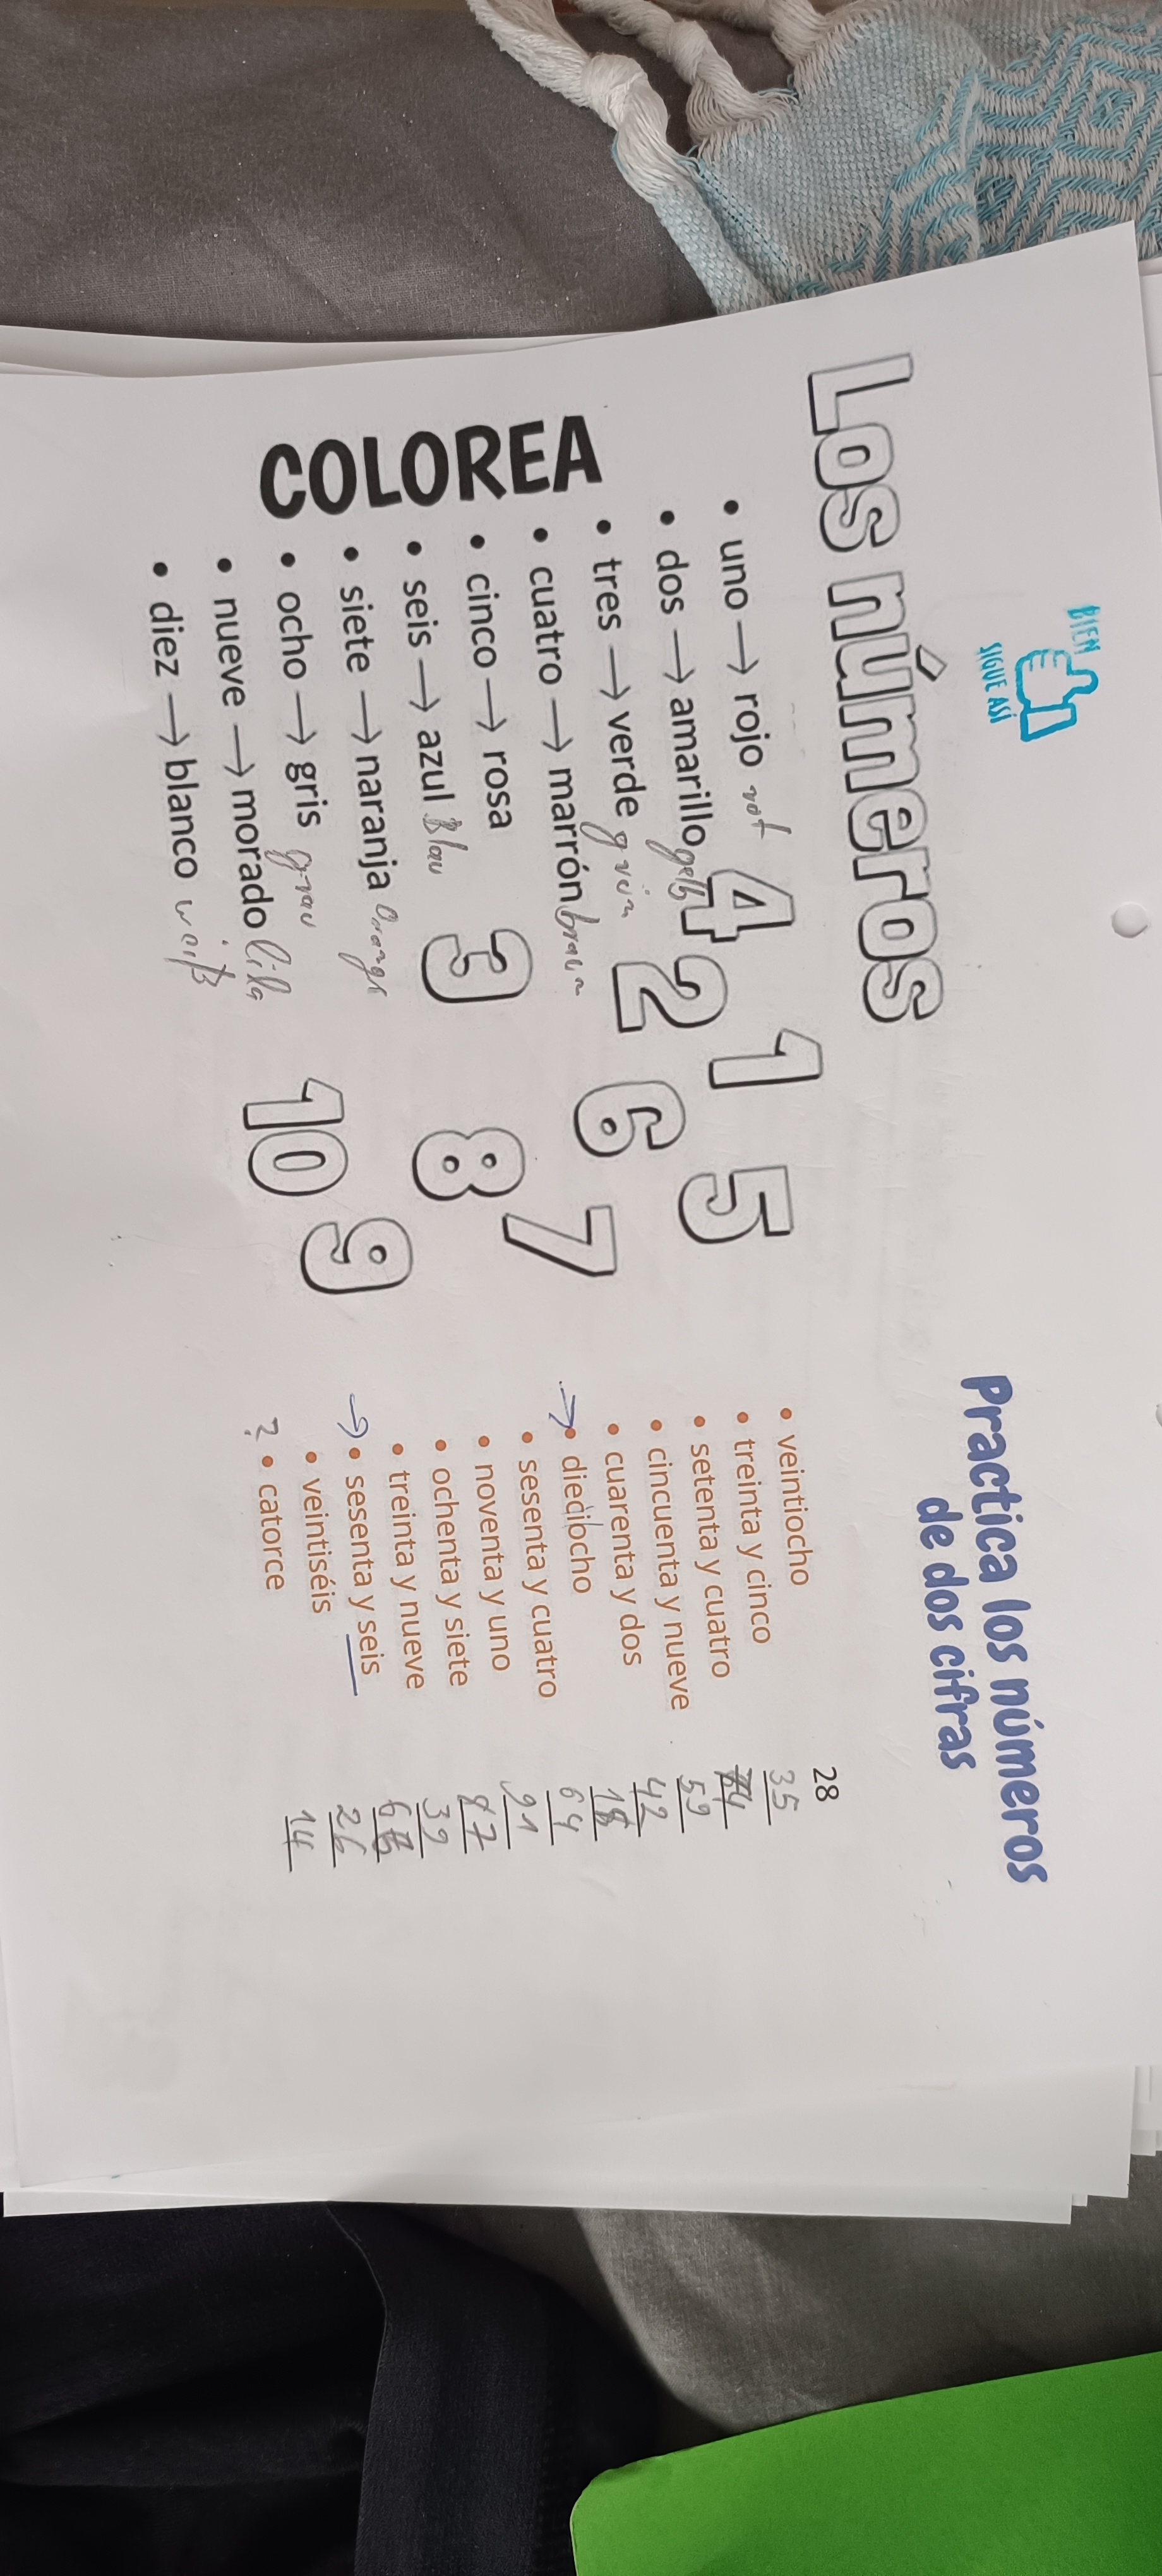 BIEN
SIGUE ASÍ
Los números
COLOREA
• uno → rojo rot
• dos → amarillo gelb
• tres → verde grün
• cuatro → marrón braun
• cinco → rosa
• seis → azul Blau
• siete → naranja Orange
• ocho → gris grau
• nueve → morado lila
• diez → blanco weiß
4 1
2 5
6
3 7
8
10 9
Practica los números
de dos cifras
• veintiocho 28
• treinta y cinco 35
• setenta y cuatro 74
• cincuenta y nueve 59
• cuarenta y dos 42
→ • dieciocho 18
• sesenta y cuatro 64
• noventa y uno 91
• ochenta y siete 87
• treinta y nueve 39
→ • sesenta y seis 66
• veintiséis 26
? • catorce 14